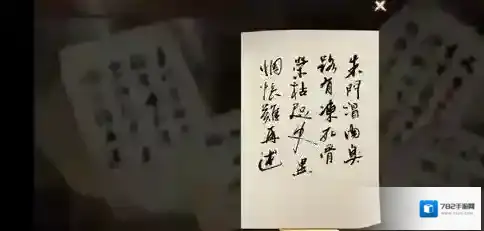 朱門酒肉臭
路有凍死骨
榮枯咫尺異
惆悵難再述
782手游网